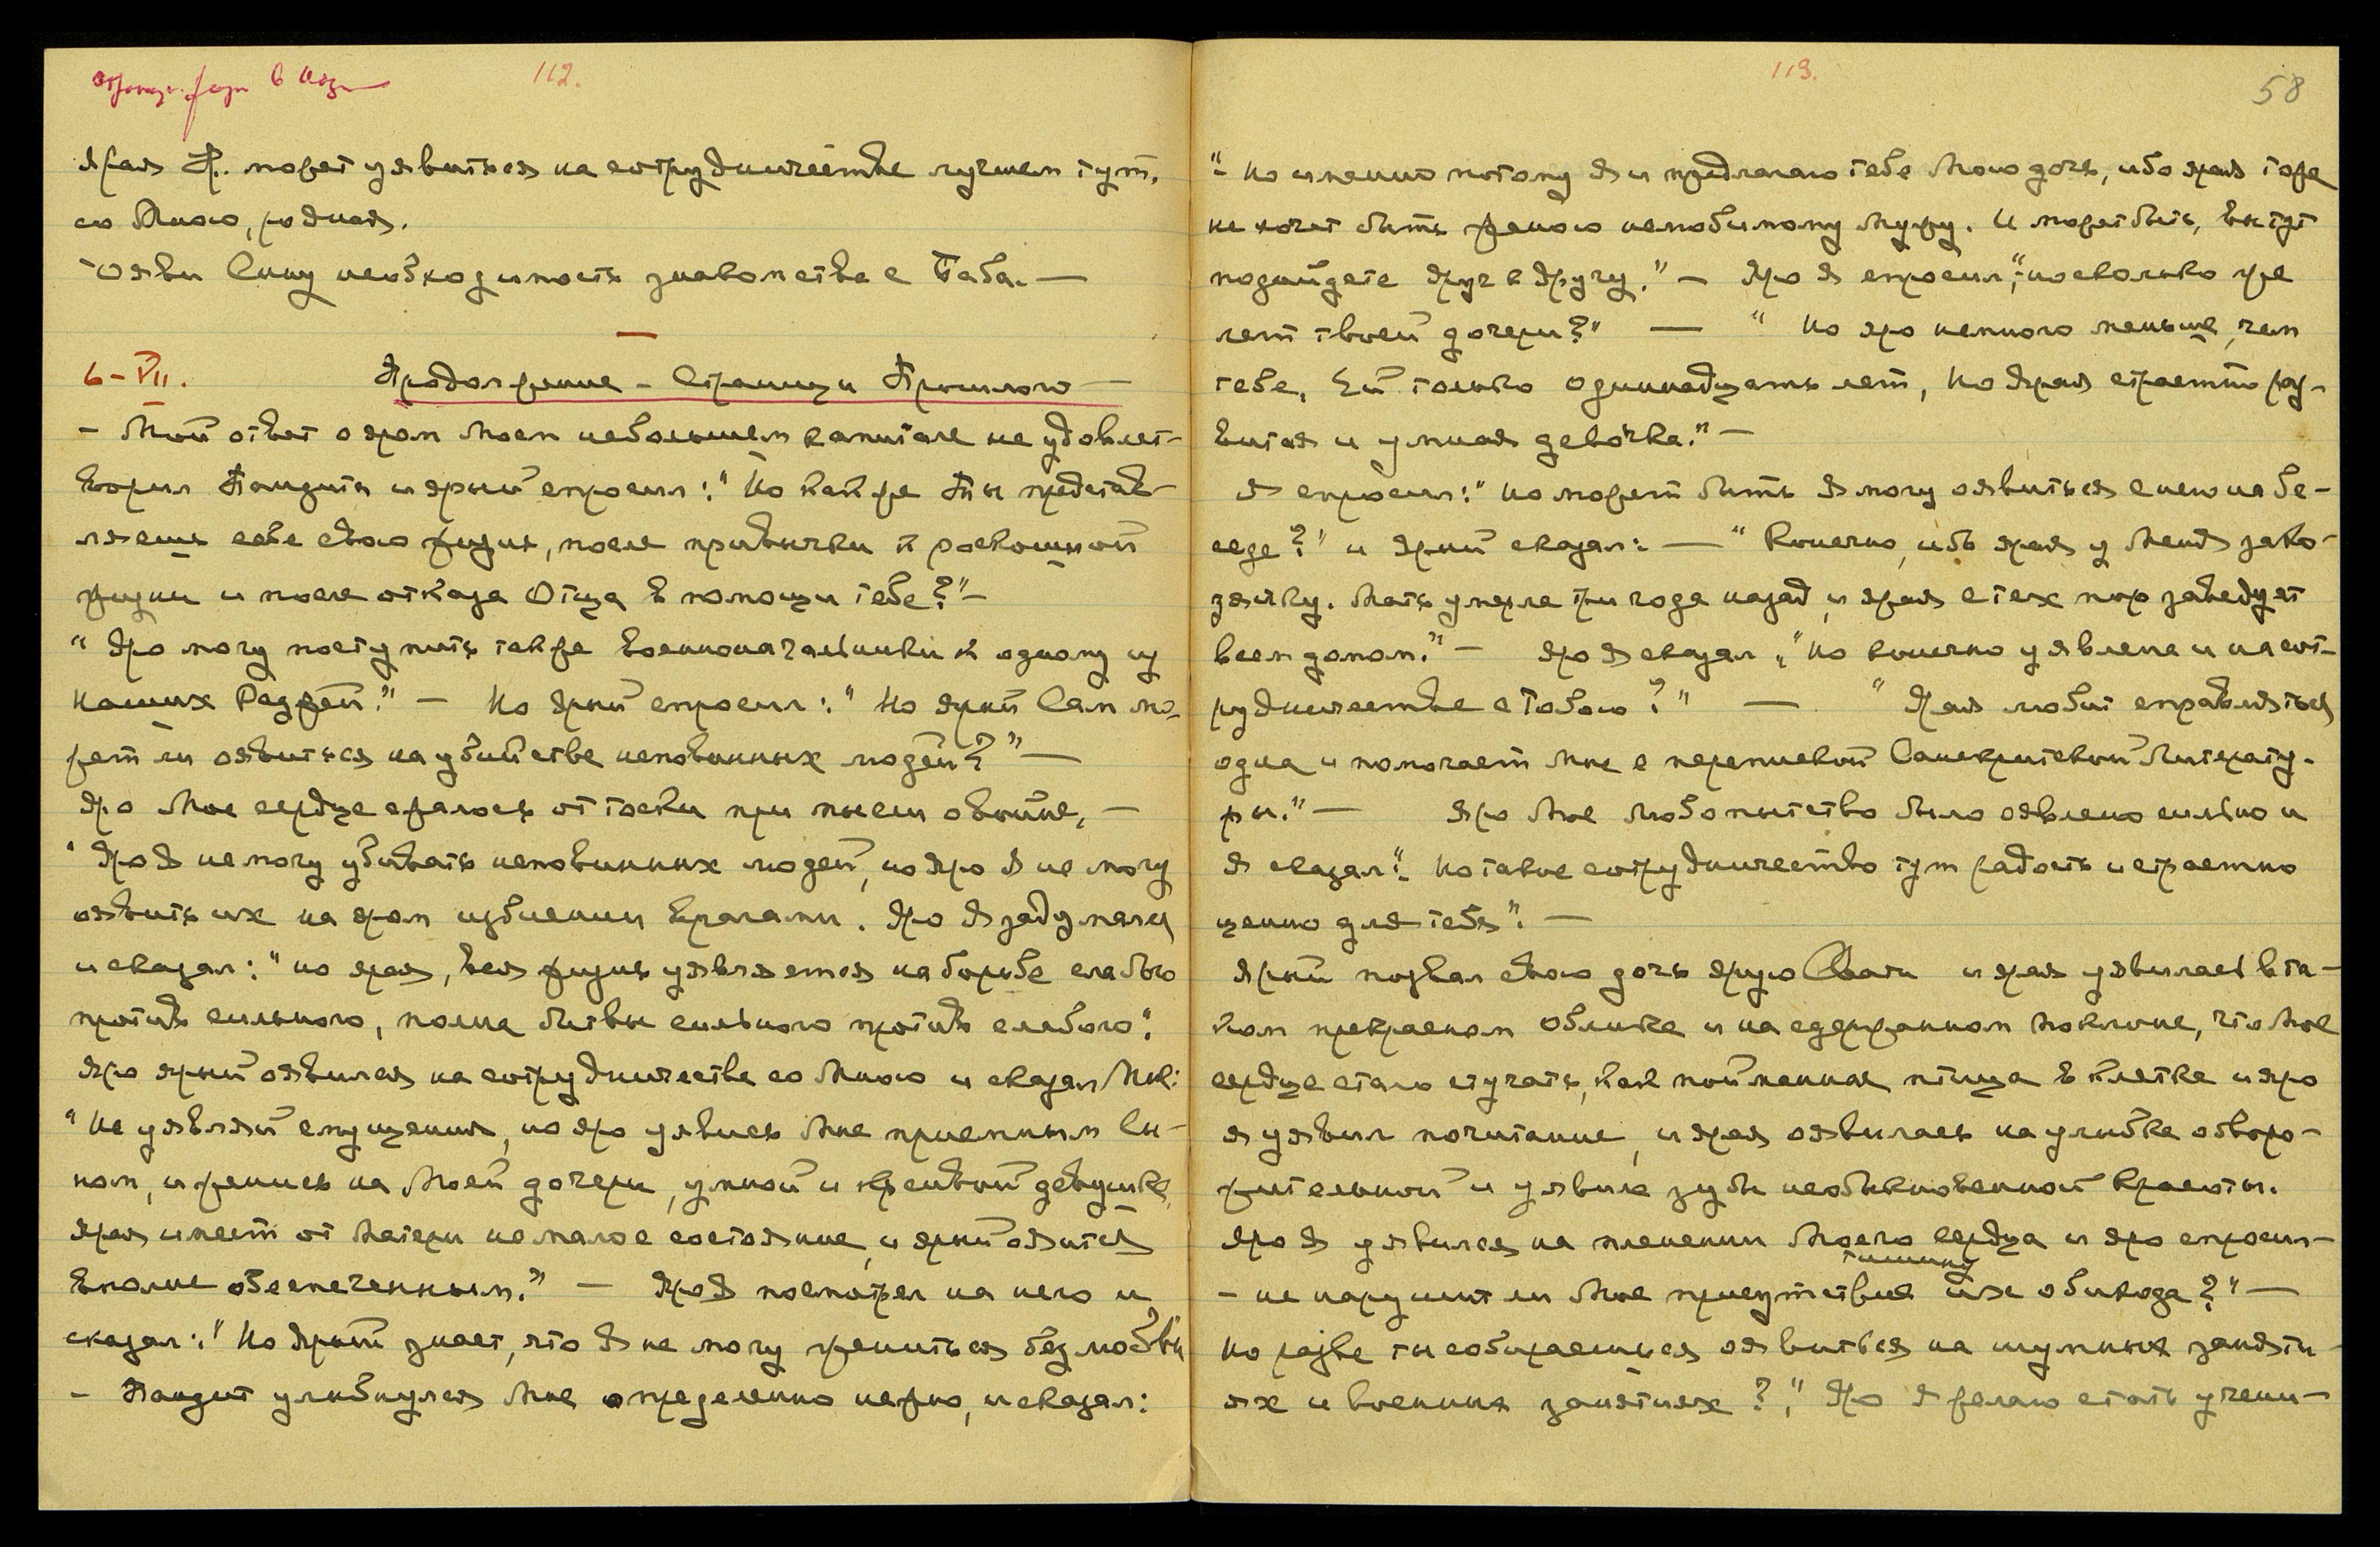 112.
Ярая Ж. может уявиться на сотрудничестве лучшем тут,
со Мною, родная.
Ояви Сину необходимость знакомства с Баба. —
6 – VII. Продолжение – Страницы Прошлого —
– Мой ответ о яром Моем небольшем капитале не удовлет-
ворил Пандита и ярый спросил: " Но как же Ты представ-
ляешь себе свою жизнь, после привычки к роскошной
жизни и после отказа Отца в помощи тебе?" –
" Яро могу поступить также военноначальником к одному из
наших Раджей." – Но ярый спросил: " Но ярый Сам мо-
жет ли оявиться на убийстве неповинных людей?" —
Яро Мое сердце сжалось от тоски при мысли о войне, —
" Яро Я не могу убивать неповинных людей, но яро Я не могу
оявить их на яром избиении врагами. Яро Я задумался
и сказал: " но ярая, вся жизнь уявляется на борьбе слабого
против сильного, полна битвы сильного против слабого".
Яро ярый оявился на сотрудничестве со Мною и сказал Мне:
" Не уявляй смущения, но яро уявись Мне приемным Сы-
ном, и женись на Моей дочери, умной и красивой девушке,
ярая имеет от Матери немалое состояние, и ярый оявится
вполне обеспеченным." — Яро Я посмотрел на него и
сказал: " Но ярый знает, что Я не могу жениться без любви"
– Пандит улыбнулся Мне определенно нежно, и сказал:
113.
58
"– Но именно потому Я и предлагаю тебе Мою дочь, ибо ярая тоже
не хочет быть женою нелюбимому Мужу. И может быть, вы тут
подойдете друг к другу." – Яро Я спросил, "– но сколько же
лет твоей дочери?" — " Но яро немного меньше, чем
тебе, Ей только одиннадцать лет, но ярая страстно раз-
витая и умная девочка." –
Я спросил: " Но может быть Я могу оявиться с нею на бе-
седе?" и ярый сказал: — " Конечно, ибо ярая у Меня за хо-
зяйку. Мать умерла три года назад, и ярая с тех пор заведует
всем домом." – Яро Я сказал, " Но конечно уявлена и на сот-
рудничестве с Тобою?" — " Ярая любит справляться
одна и помогает Мне с перепиской Санскритской Литерату-
ры." — Яро Мое любопытство было оявлено сильно и
Я сказал "– Но такое сотрудничество тут радость и страстно
ценно для тебя". —
Ярый позвал свою дочь ярую Свати и ярая уявилась в та-
ком прекрасном Облике и на сдержанном поклоне, что Мое
сердце стало стучать, как пойманная птица в клетке и яро
Я уявил почитание, и ярая оявилась на улыбке обворо-
жительной и уявила зубы необыкновенной красоты.
Яро Я уявился на пленении Моего сердца и яро спросил –
– не нарушит ли Мое присутствие тишину их обихода?" —
Но разве ты собираешься оявиться на шумных заняти-
ях и военных занятиях?", Яро Я желаю стать учени-